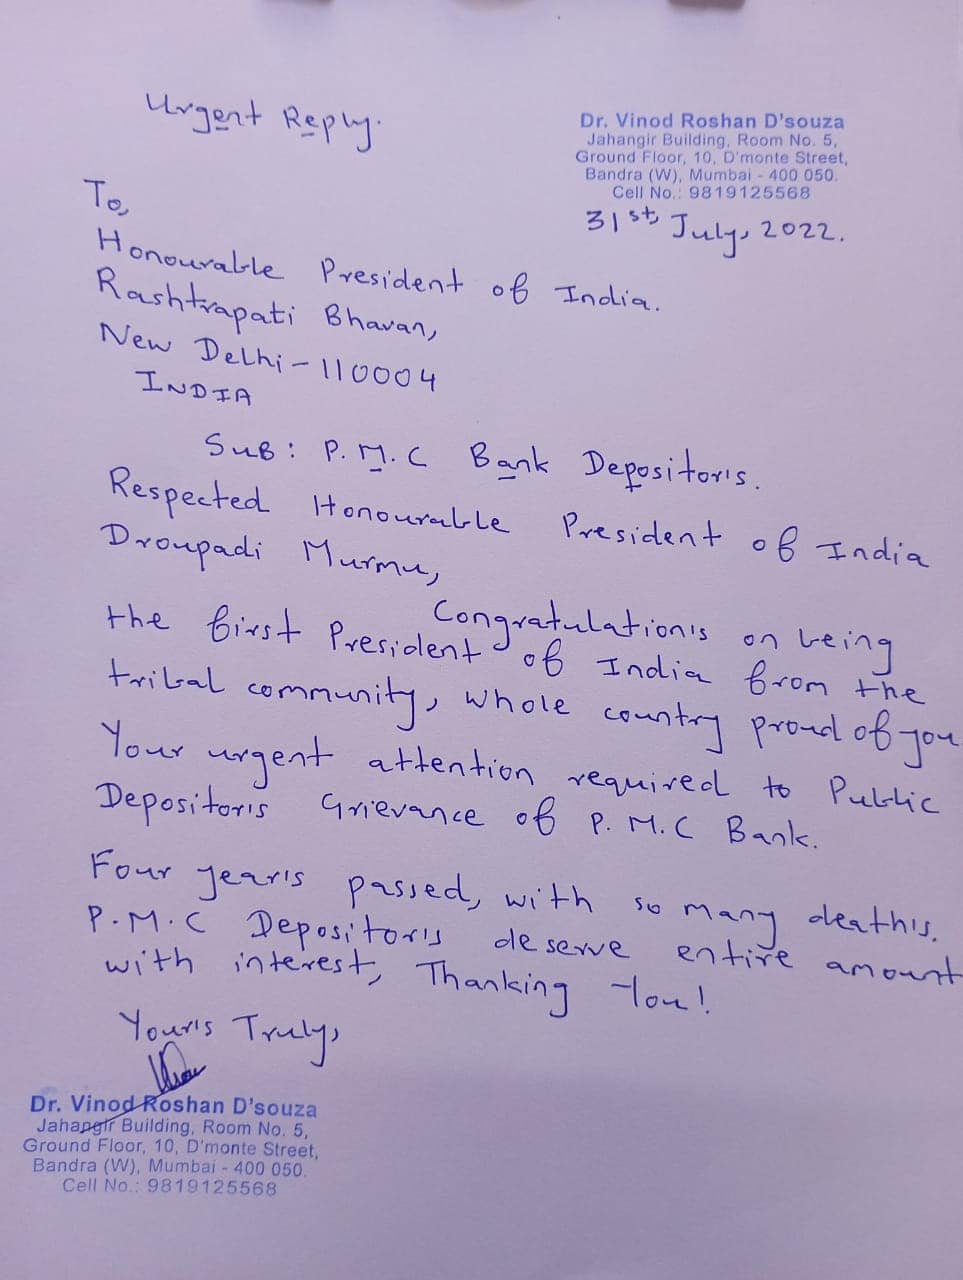 Urgent Reply.
Dr. Vinod Roshan D'souza
Jahangir Building, Room No. 5,
Ground Floor, 10, D'monte Street,
Bandra (W), Mumbai - 400 050.
Cell No.: 9819125568
31st, July, 2022.
To,
Honourable President of India.
Rashtrapati Bhavan,
New Delhi - 110004
INDIA
Sub: P.M.C Bank Depositor's.
Respected Honourable President of India
Droupadi Murmu,
Congratulation's on being
the first President of India from the
tribal community, whole country proud of you
Your urgent attention required to Public
Depositor's Grievance of P.M.C Bank.
Four year's passed, with so many death's.
P.M.C Depositor's deserve entire amount
with interest, Thanking You!
Your's Truly,
Dr. Vinod Roshan D'souza
Jahangir Building, Room No. 5,
Ground Floor, 10, D'monte Street,
Bandra (W), Mumbai - 400 050.
Cell No.: 9819125568